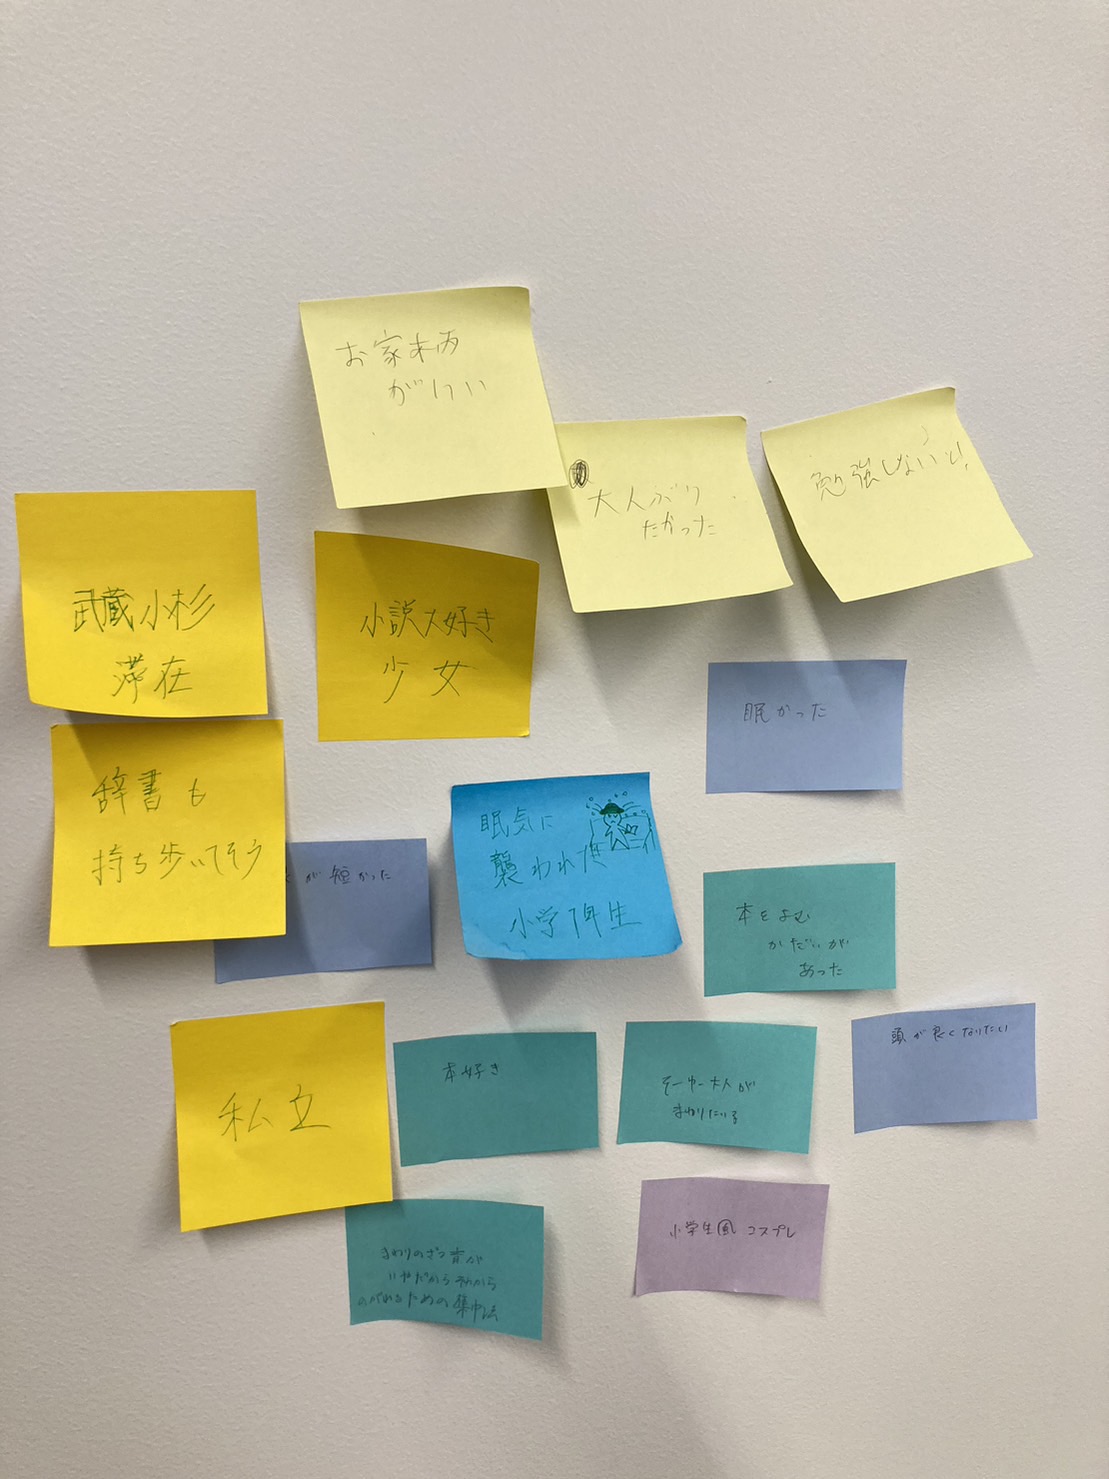 お家柄
がいい
大人ぶり
たかった
勉強しないと!
武蔵小杉
滞在
小説大好き
少女
眠かった
辞書も
持ち歩いてそう
が短かった
眠気に
襲われた
小学1年生
本をよむ
かだいが
あった
私立
本好き
そーゆー大人が
まわりにいる
頭が良くなりたい
まわりのざつ音が
いやだからそれから
のがれるための集中法
小学生風コスプレ